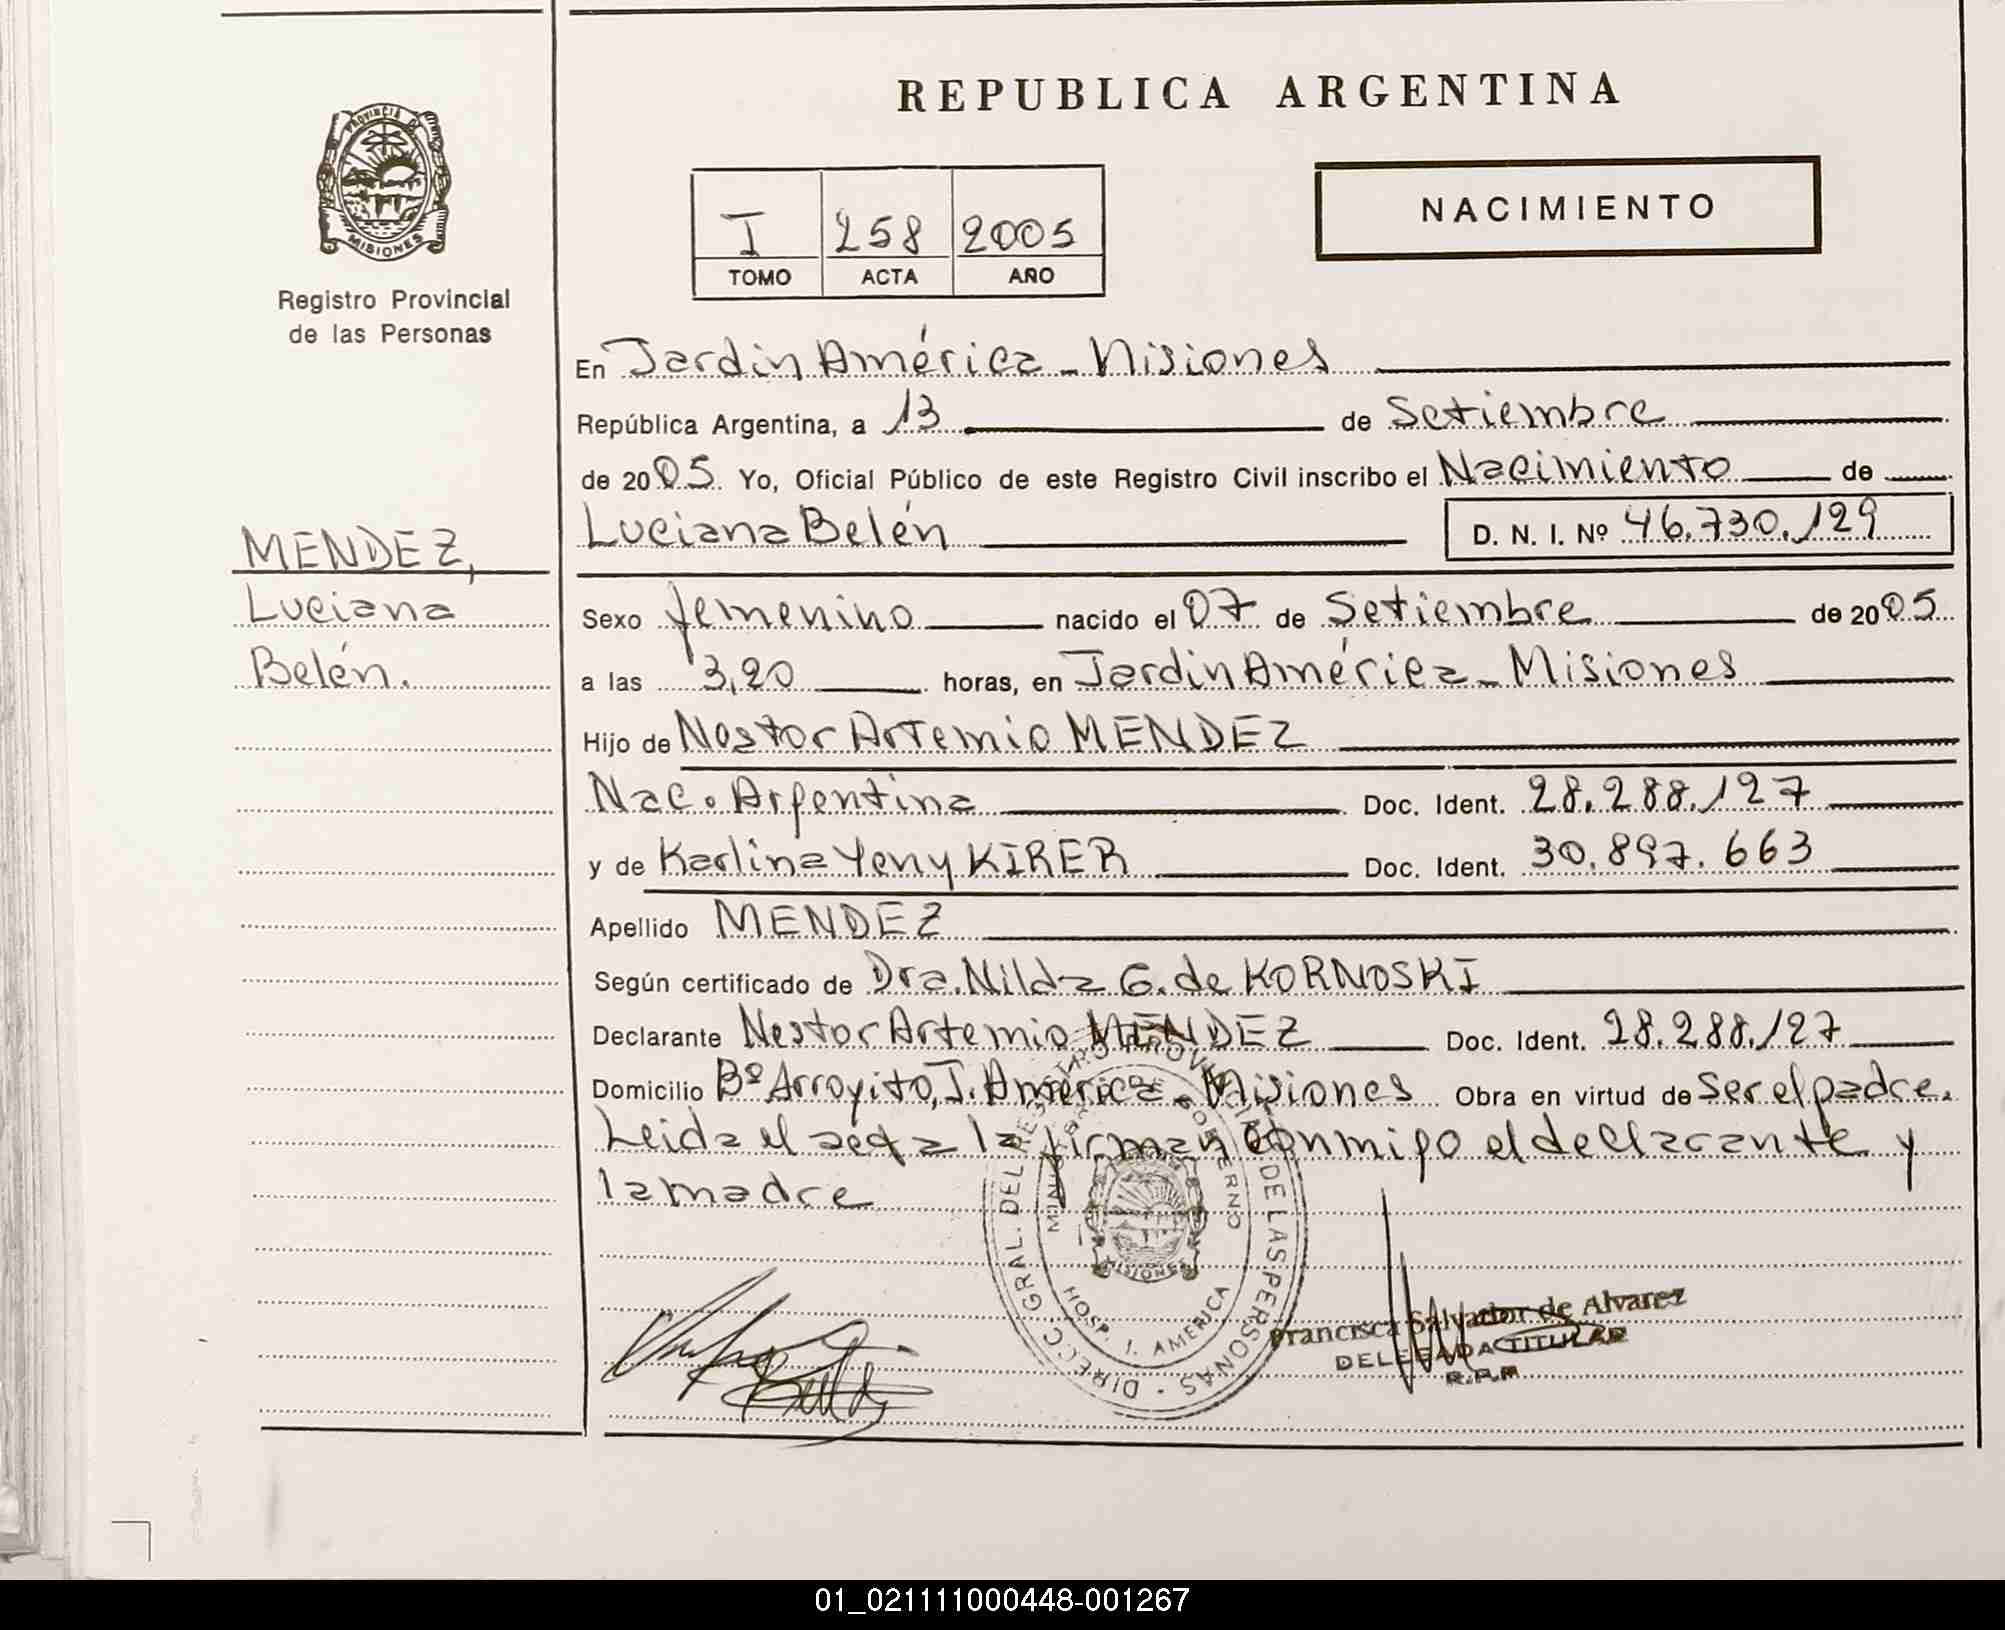 REPUBLICA ARGENTINA
PROVINCIA DE MISIONES
Registro Provincial
de las Personas
NACIMIENTO
I 258 2005
TOMO ACTA AÑO
MENDEZ,
Luciana
Belén.
En Jardin América - Misiones
República Argentina, a 13 de Setiembre
de 2005. Yo, Oficial Público de este Registro Civil inscribo el Nacimiento de
Luciana Belén D. N. I. Nº 46.730.129
Sexo femenino nacido el 07 de Setiembre de 2005
a las 3,20 horas, en Jardin América - Misiones
Hijo de Nestor Artemio MENDEZ
Nac. Argentina Doc. Ident. 28.288.127
y de Karlina Yeny KIRER Doc. Ident. 30.897.663
Apellido MENDEZ
Según certificado de Dra. Nilda G. de KORNOSKI
Declarante Nestor Artemio MENDEZ Doc. Ident. 28.288.127
Domicilio Bº Arroyito, J. América - Misiones Obra en virtud de Ser el padre.
Leida el acta la firman conmigo el declarante y
la madre
DIRECC GRAL. DEL REGISTRO PROVINCIAL DE LAS PERSONAS
MINISTERIO DE GOBIERNO
MISIONES
HOSP. J. AMERICA
Francisca Salvador de Alvarez
DELEGADA TITULAR
R.P.P.
01_021111000448-001267